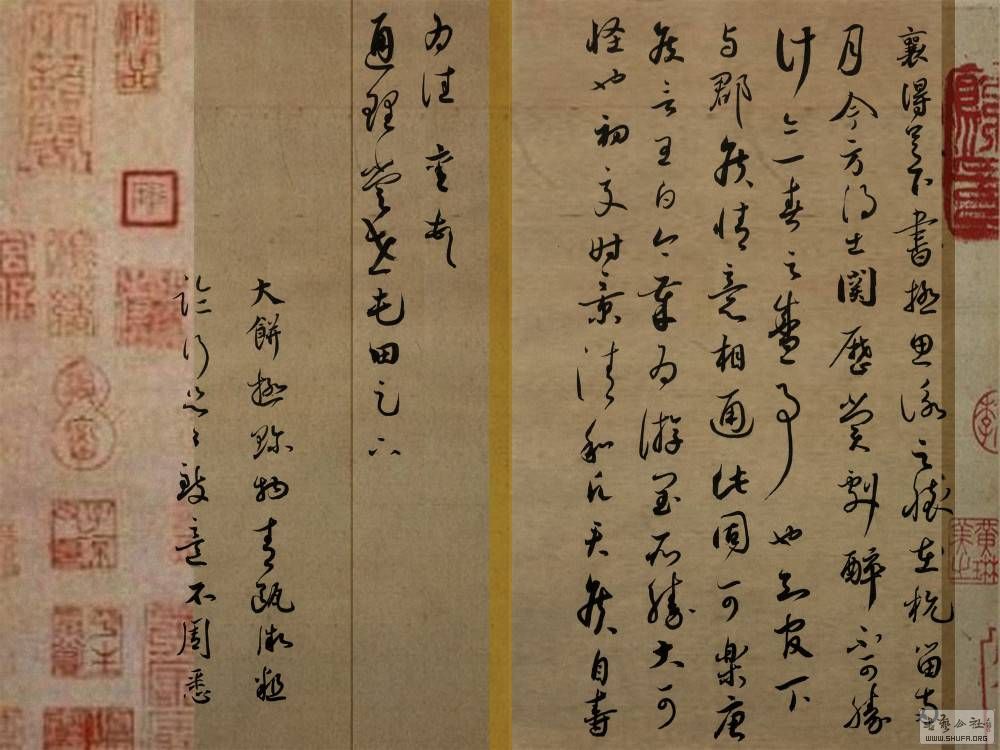 襄得足下書極思詠之懷在杭留兩
月今方得出關歷賞劇醉不可勝
計亦一春之盛事也知官下
與郡侯情意相通此固可樂唐
侯言王白今歲為游閏所勝大可
怪也初夏時景清和願君侯自壽
為佳襄頓首
通理當世屯田足下
大餅極珍物青甌微粗
臨行匆匆致意不周悉
WWW.SHUFA.ORG